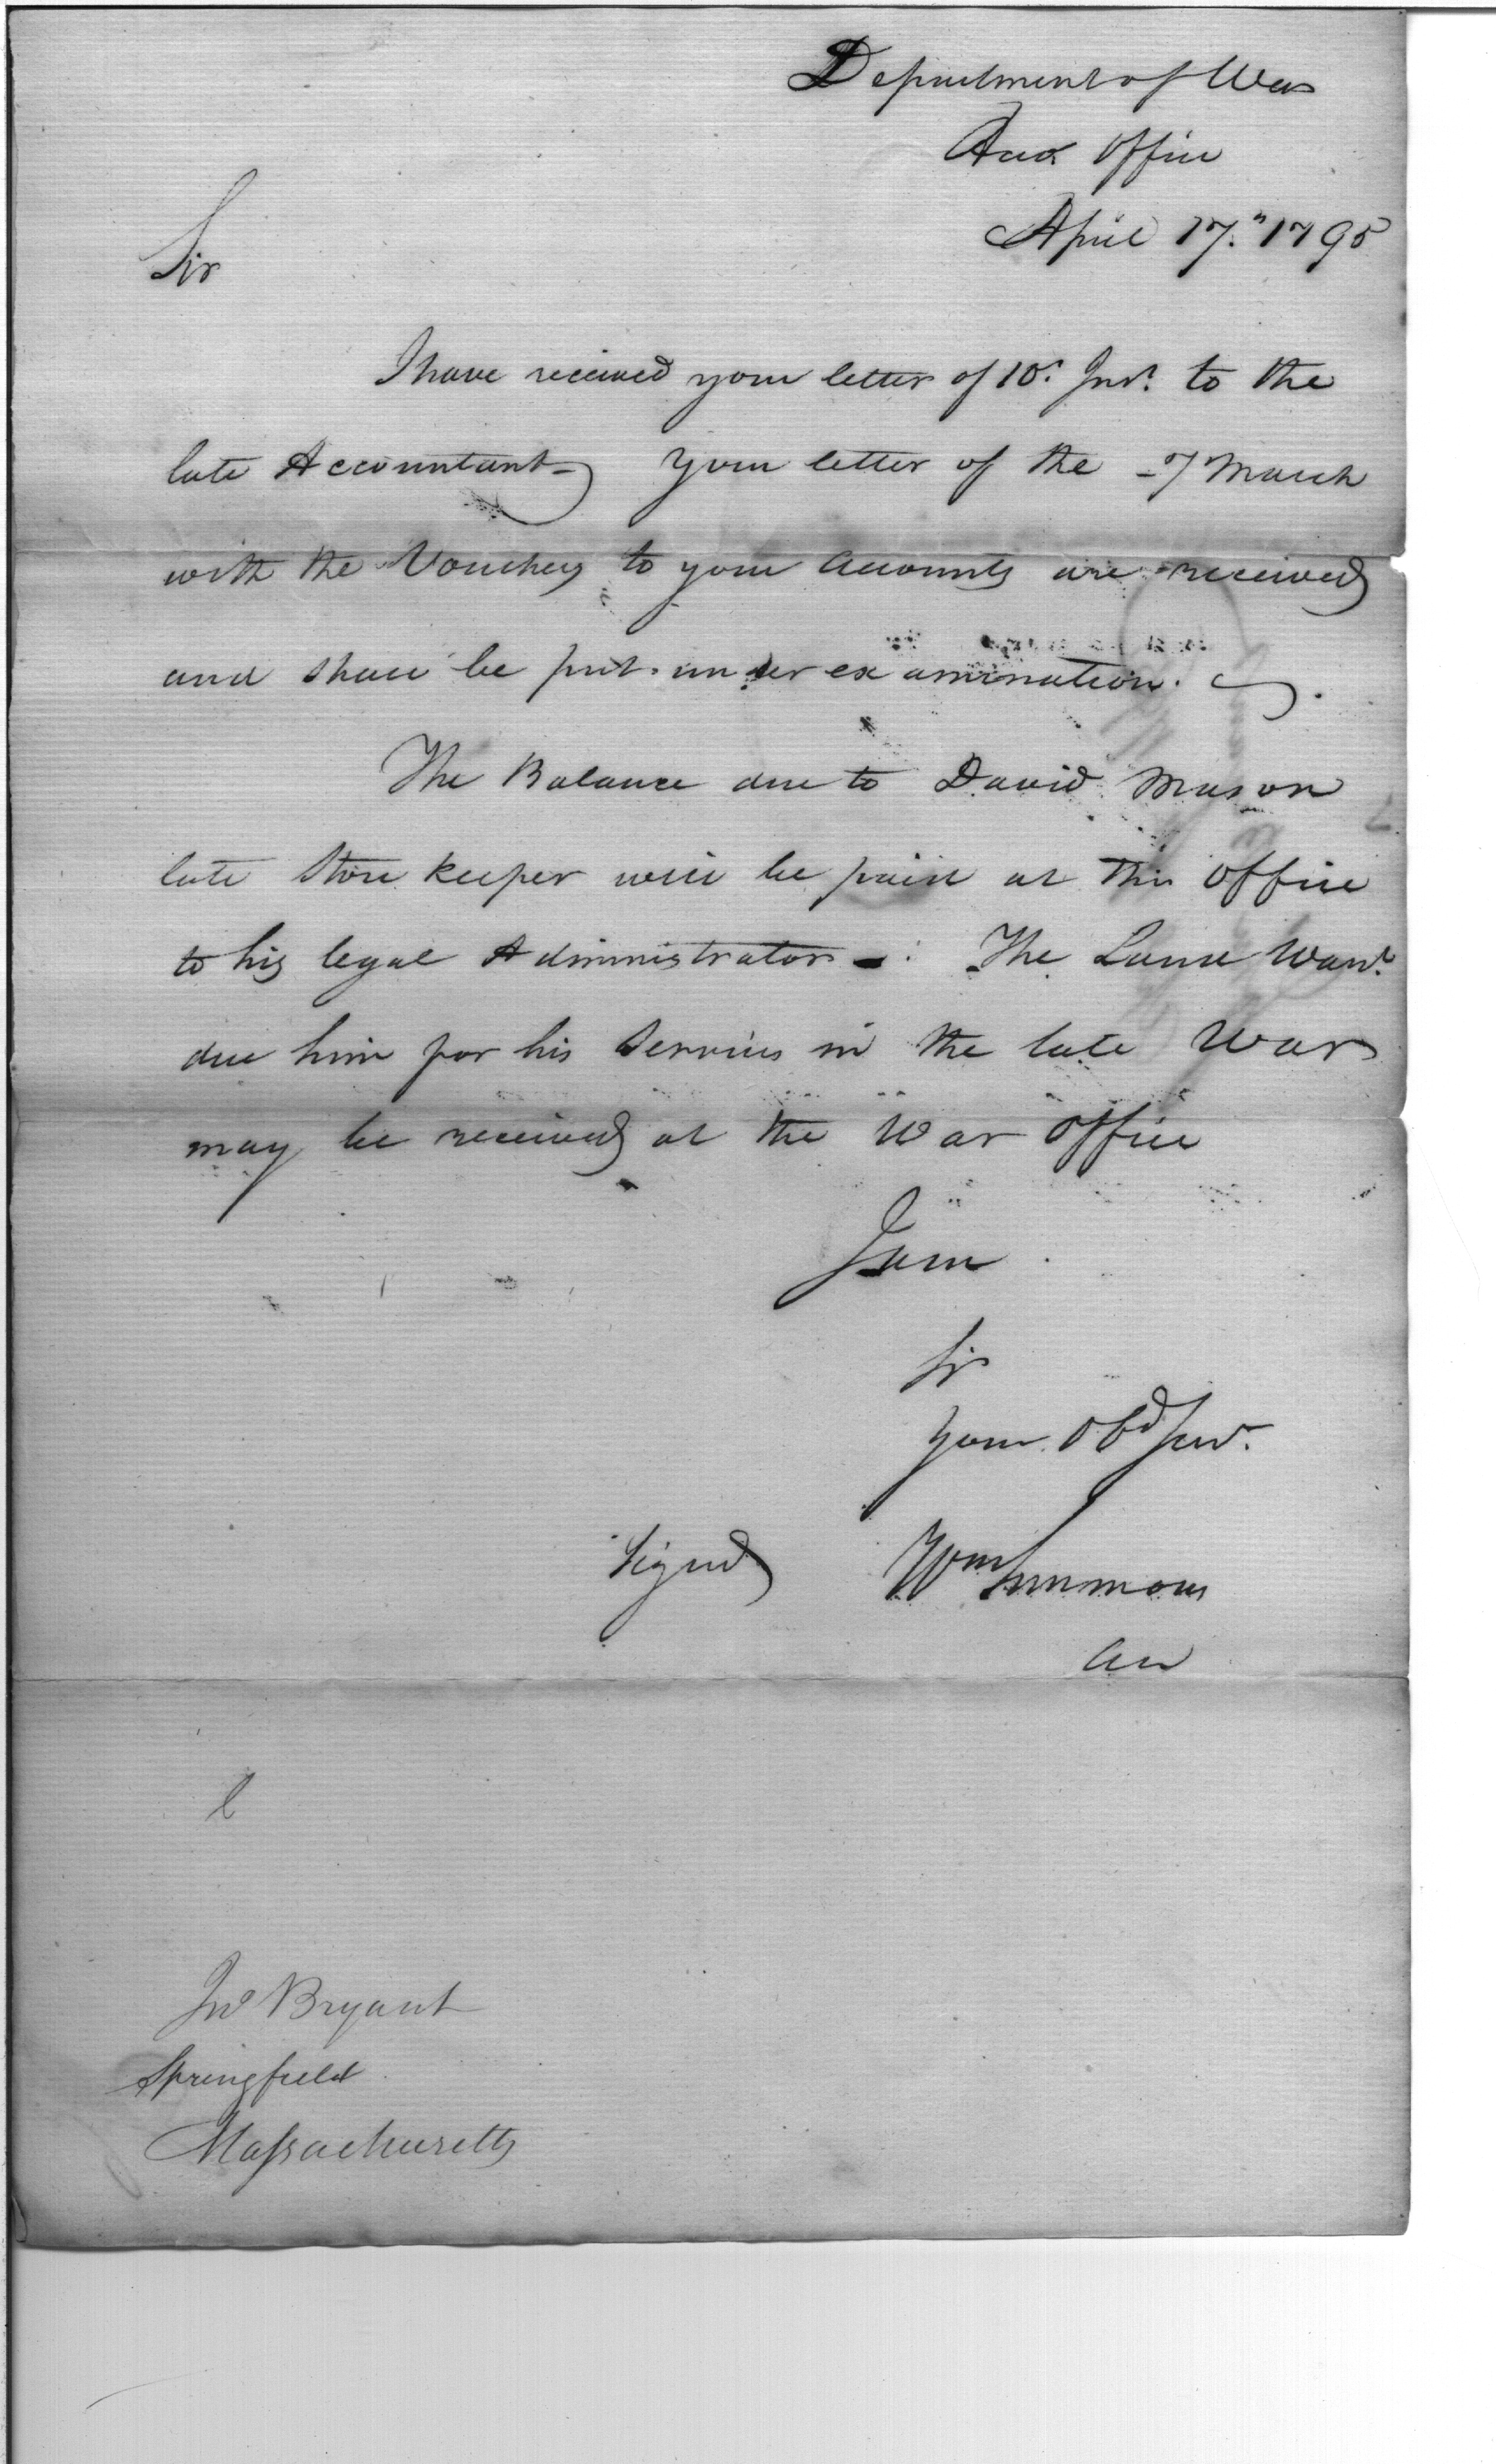 Department of War
Acco. Office
April 17.th 1795
Sir
I have received your letter of 10. Inst. to the
late Accountant Your letter of the 7 March
with the Vouchers to your accounts are received
and shall be put under examination.
The Balance due to David Mason
late Store keeper will be paid at this office
to his legal Administrator. The Land Warrt.
due him for his services in the late War
may be received at the War Office
I am
Sir
Your Obd Servt.
Signed Wm Simmons
Acc
Jno Bryant
Springfield
Massachusetts